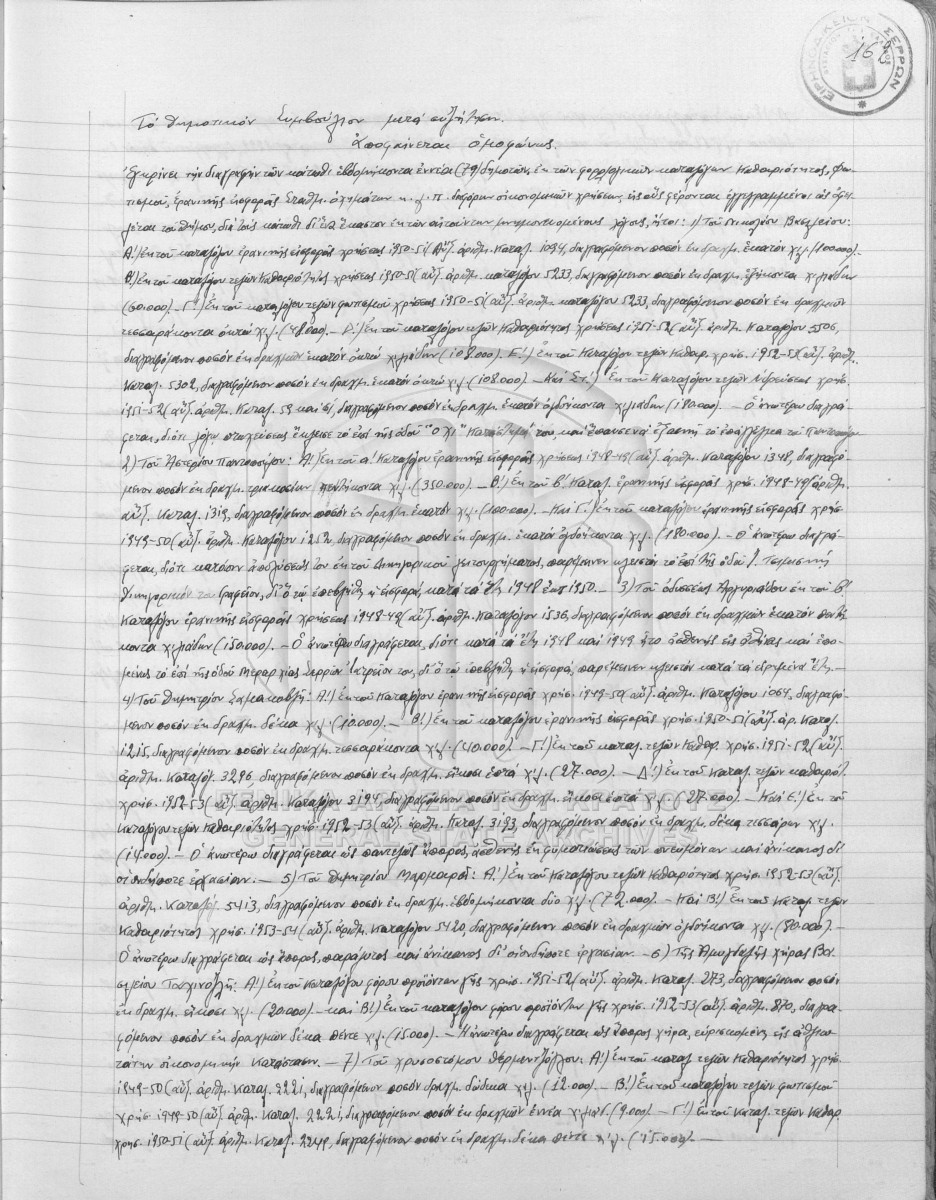 ΕΙΡΗΝΟΔΙΚΕΙΟΝ ΣΕΡΡΩΝ
168
Τό Δημοτικόν Συμβούλιον μετά συζήτησιν
ἀποφαίνεται ὁμοφώνως.
Ἐγκρίνει τήν διαγραφήν τῶν κάτωθι ἑβδομήκοντα ἐννέα (79) δημοτῶν, ἐκ τῶν φορολογικῶν καταλόγων Καθαριότητος, Φω-
τισμοῦ, ἐρανικῆς εἰσφορᾶς Σταθμ. ὀχημάτων κ.λ.π. διαφόρων οἰκονομικῶν χρήσεων, εἰς οὕς φέρονται ἐγγεγραμμένοι ὡς ὀφει-
λέται τοῦ Δήμου, διά τούς κάτωθι δι' ἕνα ἕκαστον ἐκ τῶν αὐτῶν μνημονευομένους λόγους, ἤτοι: 1) Τοῦ Νικολάου Βασιλείου:
Α') Ἐκ τοῦ καταλόγου ἐρανικῆς εἰσφορᾶς χρήσεως 1950-51 (Αὔξ. ἀριθμ. Καταλ. 1094, διαγραφόμενον ποσόν ἐκ δραχμ. ἑκατόν χιλ. (100.000).-
Β') Ἐκ τοῦ καταλόγου τελῶν Καθαριότητος χρήσεως 1950-51 (αὔξ. ἀριθμ. καταλόγου 5233, διαγραφόμενον ποσόν ἐκ δραχμ. ἑξήκοντα χιλιάδων
(60.000).- Γ') Ἐκ τοῦ καταλόγου τελῶν φωτισμοῦ χρήσεως 1950-51 (αὔξ. ἀριθμ. καταλόγου 5233, διαγραφόμενον ποσόν ἐκ δραχμῶν
τεσσαράκοντα ὀκτώ χιλ. (48.000).- Δ') Ἐκ τοῦ καταλόγου τελῶν Καθαριότητος χρήσεως 1951-52 (αὔξ. ἀριθμ. Καταλόγου 5506,
διαγραφόμενον ποσόν ἐκ δραχμῶν ἑκατόν ὀκτώ χιλιάδων (108.000). Ε') Ἐκ τοῦ Καταλόγου τελῶν Καθαρ. χρήσ. 1952-53 (αὔξ. ἀριθμ.
Καταλ. 5302, διαγραφόμενον ποσόν ἐκ δραχμ. ἑκατόν ὀκτώ χιλ. (108.000).- Καί Στ') Ἐκ τοῦ Καταλόγου τελῶν Ὑδρεύσεως χρήσ.
1951-52 (αὔξ. ἀριθμ. Καταλ. 59 καί 61, διαγραφόμενον ποσόν ἐκ δραχμ. ἑκατόν ὀγδοήκοντα χιλιάδων (180.000).- Ὁ ἀνωτέρω διαγρά-
φεται, διότι λόγῳ πτωχεύσεως ἔκλεισε τό ἐπί τῆς ὁδοῦ "ΟΧΙ" Κατάστημά του, καί ἔπαυσε νά ἐξασκῇ τό ἐπάγγελμα τοῦ Παντοπώλου
2) Τοῦ Ἀστερίου : Α') Ἐκ τοῦ α' Καταλόγου ἐρανικῆς εἰσφορᾶς χρήσεως 1948-49 (αὔξ. ἀριθμ. Καταλόγου 1348, διαγραφό-
μενον ποσόν ἐκ δραχμ. τριακοσίων πεντήκοντα χιλ. (350.000).- Β') Ἐκ τοῦ β' Καταλ. ἐρανικῆς εἰσφορᾶς χρήσ. 1948-49 (ἀριθμ.
αὔξ. Καταλ. 1319, διαγραφόμενον ποσόν ἐκ δραχμ. ἑκατόν χιλ. (100.000).- Καί Γ') Ἐκ τοῦ καταλόγου ἐρανικῆς εἰσφορᾶς χρήσ
1949-50 (αὔξ. ἀριθμ. Καταλόγου 1252, διαγραφόμενον ποσόν ἐκ δραχμ. ἑκατόν ὀγδοήκοντα χιλ. (180.000).- Ὁ ἀνωτέρω διαγρά-
φεται, διότι κατόπιν ἐκ τοῦ Δικηγορικοῦ λειτουργήματος, παρέμεινεν κλειστόν τό ἐπί τῆς ὁδοῦ
Δικηγορικόν του Γραφεῖον, δι' ὅ τῷ ἐπεβλήθη ἡ εἰσφορά, κατά τά ἔτη 1948 ἕως 1950.- 3) Τοῦ Ὀδυσσέως Ἀργυριάδου ἐκ τοῦ β'
Καταλόγου ἐρανικῆς εἰσφορᾶς χρήσεως 1948-49 (αὔξ. ἀριθμ. Καταλόγου 1536, διαγραφόμενον ποσόν ἐκ δραχμῶν ἑκατόν πεντή-
κοντα χιλιάδων (150.000).- Ὁ ἀνωτέρω διαγράφεται, διότι κατά τά ἔτη 1948 καί 1949 ἦτο ἀσθενής εἰς Ἀθήνας καί ἑπο-
μένως τό ἐπί τῆς ὁδοῦ Μεραρχίας Σερρῶν Ἰατρεῖον του, δι' ὅ τῷ ἐπεβλήθη ἡ εἰσφορά, παρέμεινεν κλειστόν κατά τά εἰρημένα ἔτη.-
4) Τοῦ Δημητρίου Σαμακοβλῆ: Α') Ἐκ τοῦ Καταλόγου ἐρανικῆς εἰσφορᾶς χρήσ. 1949-50 (αὔξ. ἀριθμ. Καταλόγου 1064, διαγραφό-
μενον ποσόν ἐκ δραχμ. δέκα χιλ. (10.000).- Β') Ἐκ τοῦ καταλόγου ἐρανικῆς εἰσφορᾶς χρήσ. 1950-51 (αὔξ. ἀρ. Καταλ.
1215, διαγραφόμενον ποσόν ἐκ δραχμ. τεσσαράκοντα χιλ. (40.000).- Γ') Ἐκ τοῦ καταλ. τελῶν Καθαρ. χρήσ. 1951-52 (αὔξ.
ἀριθμ. Καταλόγ. 3296, διαγραφόμενον ποσόν ἐκ δραχμ. εἴκοσι ἑπτά χιλ. (27.000).- Δ') Ἐκ τοῦ Καταλ. τελῶν καθαριότ.
χρήσ. 1952-53 (αὔξ. ἀριθμ. Καταλόγου 3194, διαγραφόμενον ποσόν ἐκ δραχμ. εἴκοσι ἑπτά χιλ. (27.000).- Καί Ε') Ἐκ τοῦ
Καταλόγου τελῶν Καθαριότητος χρήσ. 1952-53 (αὔξ. ἀριθμ. Καταλ. 3193, διαγραφόμενον ποσόν ἐκ δραχμ. δέκα τεσσάρων χιλ.
(14.000).- Ὁ ἀνωτέρω διαγράφεται ὡς παντελῶς ἄπορος, ἀσθενής ἐκ φυματιώσεως τῶν πνευμόνων καί ἀνίκανος δι'
οἱανδήποτε ἐργασίαν.- 5) Τοῦ Δημητρίου Μαρμαρᾶ: Α') Ἐκ τοῦ Καταλόγου τελῶν Καθαριότητος χρήσ. 1952-53 (αὔξ.
ἀριθμ. Καταλόγ. 5413, διαγραφόμενον ποσόν ἐκ δραχμ. ἑβδομήκοντα δύο χιλ. (72.000).- Καί Β') Ἐκ τοῦ Καταλ. τελῶν
Καθαριότητος χρήσ. 1953-54 (αὔξ. ἀριθμ. Καταλόγου 5420, διαγραφόμενον ποσόν ἐκ δραχμῶν ὀγδοήκοντα χιλ. (80.000).-
Ὁ ἀνωτέρω διαγράφεται ὡς ἄπορος, παράλυτος καί ἀνίκανος δι' οἱανδήποτε ἐργασίαν.- 6) Τῆς χήρας Βα-
σιλείου : Α') Ἐκ τοῦ Καταλόγου φόρου προϊόντων γῆς χρήσ. 1951-52 (αὔξ. ἀριθμ. Καταλ. 273, διαγραφόμενον ποσόν
ἐκ δραχμ. εἴκοσι χιλ. (20.000).- καί Β') Ἐκ τοῦ καταλόγου φόρου προϊόντων γῆς χρήσ. 1952-53 (αὔξ. ἀριθμ. 870, διαγρα-
φόμενον ποσόν ἐκ δραχμῶν δέκα πέντε χιλ. (15.000).- Ἡ ἀνωτέρω διαγράφεται ὡς ἄπορος χήρα, εὑρισκομένη εἰς ἀθλιω-
τάτην οἰκονομικήν Κατάστασιν.- 7) Τοῦ Χρυσοστόμου Δερμεντζόγλου: Α') Ἐκ τοῦ καταλ. τελῶν Καθαριότητος χρήσ.
1949-50 (αὔξ. ἀριθμ. Καταλ. 2221, διαγραφόμενον ποσόν δραχμ. δώδεκα χιλ. (12.000).- Β') Ἐκ τοῦ καταλόγου τελῶν φωτισμοῦ
χρήσ. 1949-50 (αὔξ. ἀριθμ. Καταλ. 2221, διαγραφόμενον ποσόν ἐκ δραχμῶν ἐννέα χιλιάδ. (9.000).- Γ') Ἐκ τοῦ Καταλ. τελῶν Καθαρ
χρήσ. 1950-51 (αὔξ. ἀριθμ. Καταλ. 2248, διαγραφόμενον ποσόν ἐκ δραχμ. δέκα πέντε χιλ. (15.000).-
ΓΕΝΙΚΑ ΑΡΧΕΙΑ ΤΟΥ ΚΡΑΤΟΥΣ
GENERAL STATE ARCHIVES